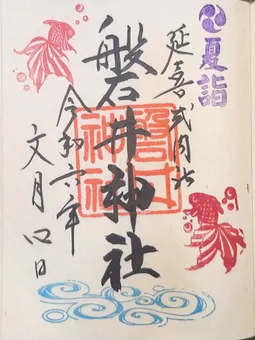 夏詣
延喜式内社
磐井神社
磐井
神社
令和六年
文月 日